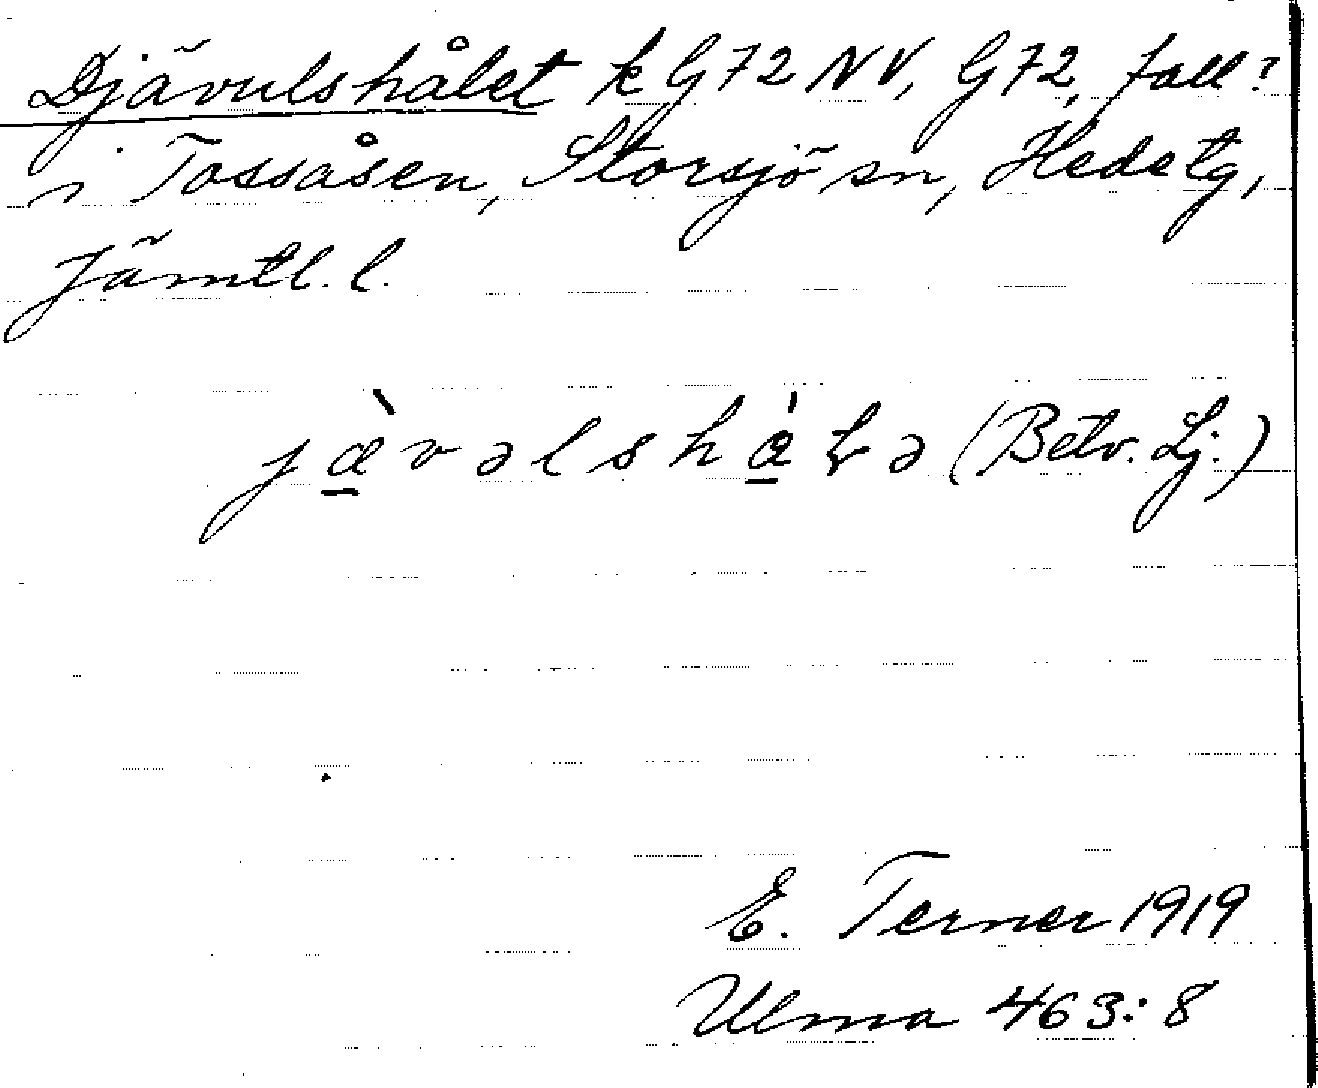 Djävulshålet k G72NV, G72, fall?
i Tossåsen, Storsjö sn, Hede tg,
Jämtl. l.
jæ̠̀vəlshæ̠̀ɫə (Betv. Lj.)
E. Terner 1919
Ulma 463:8